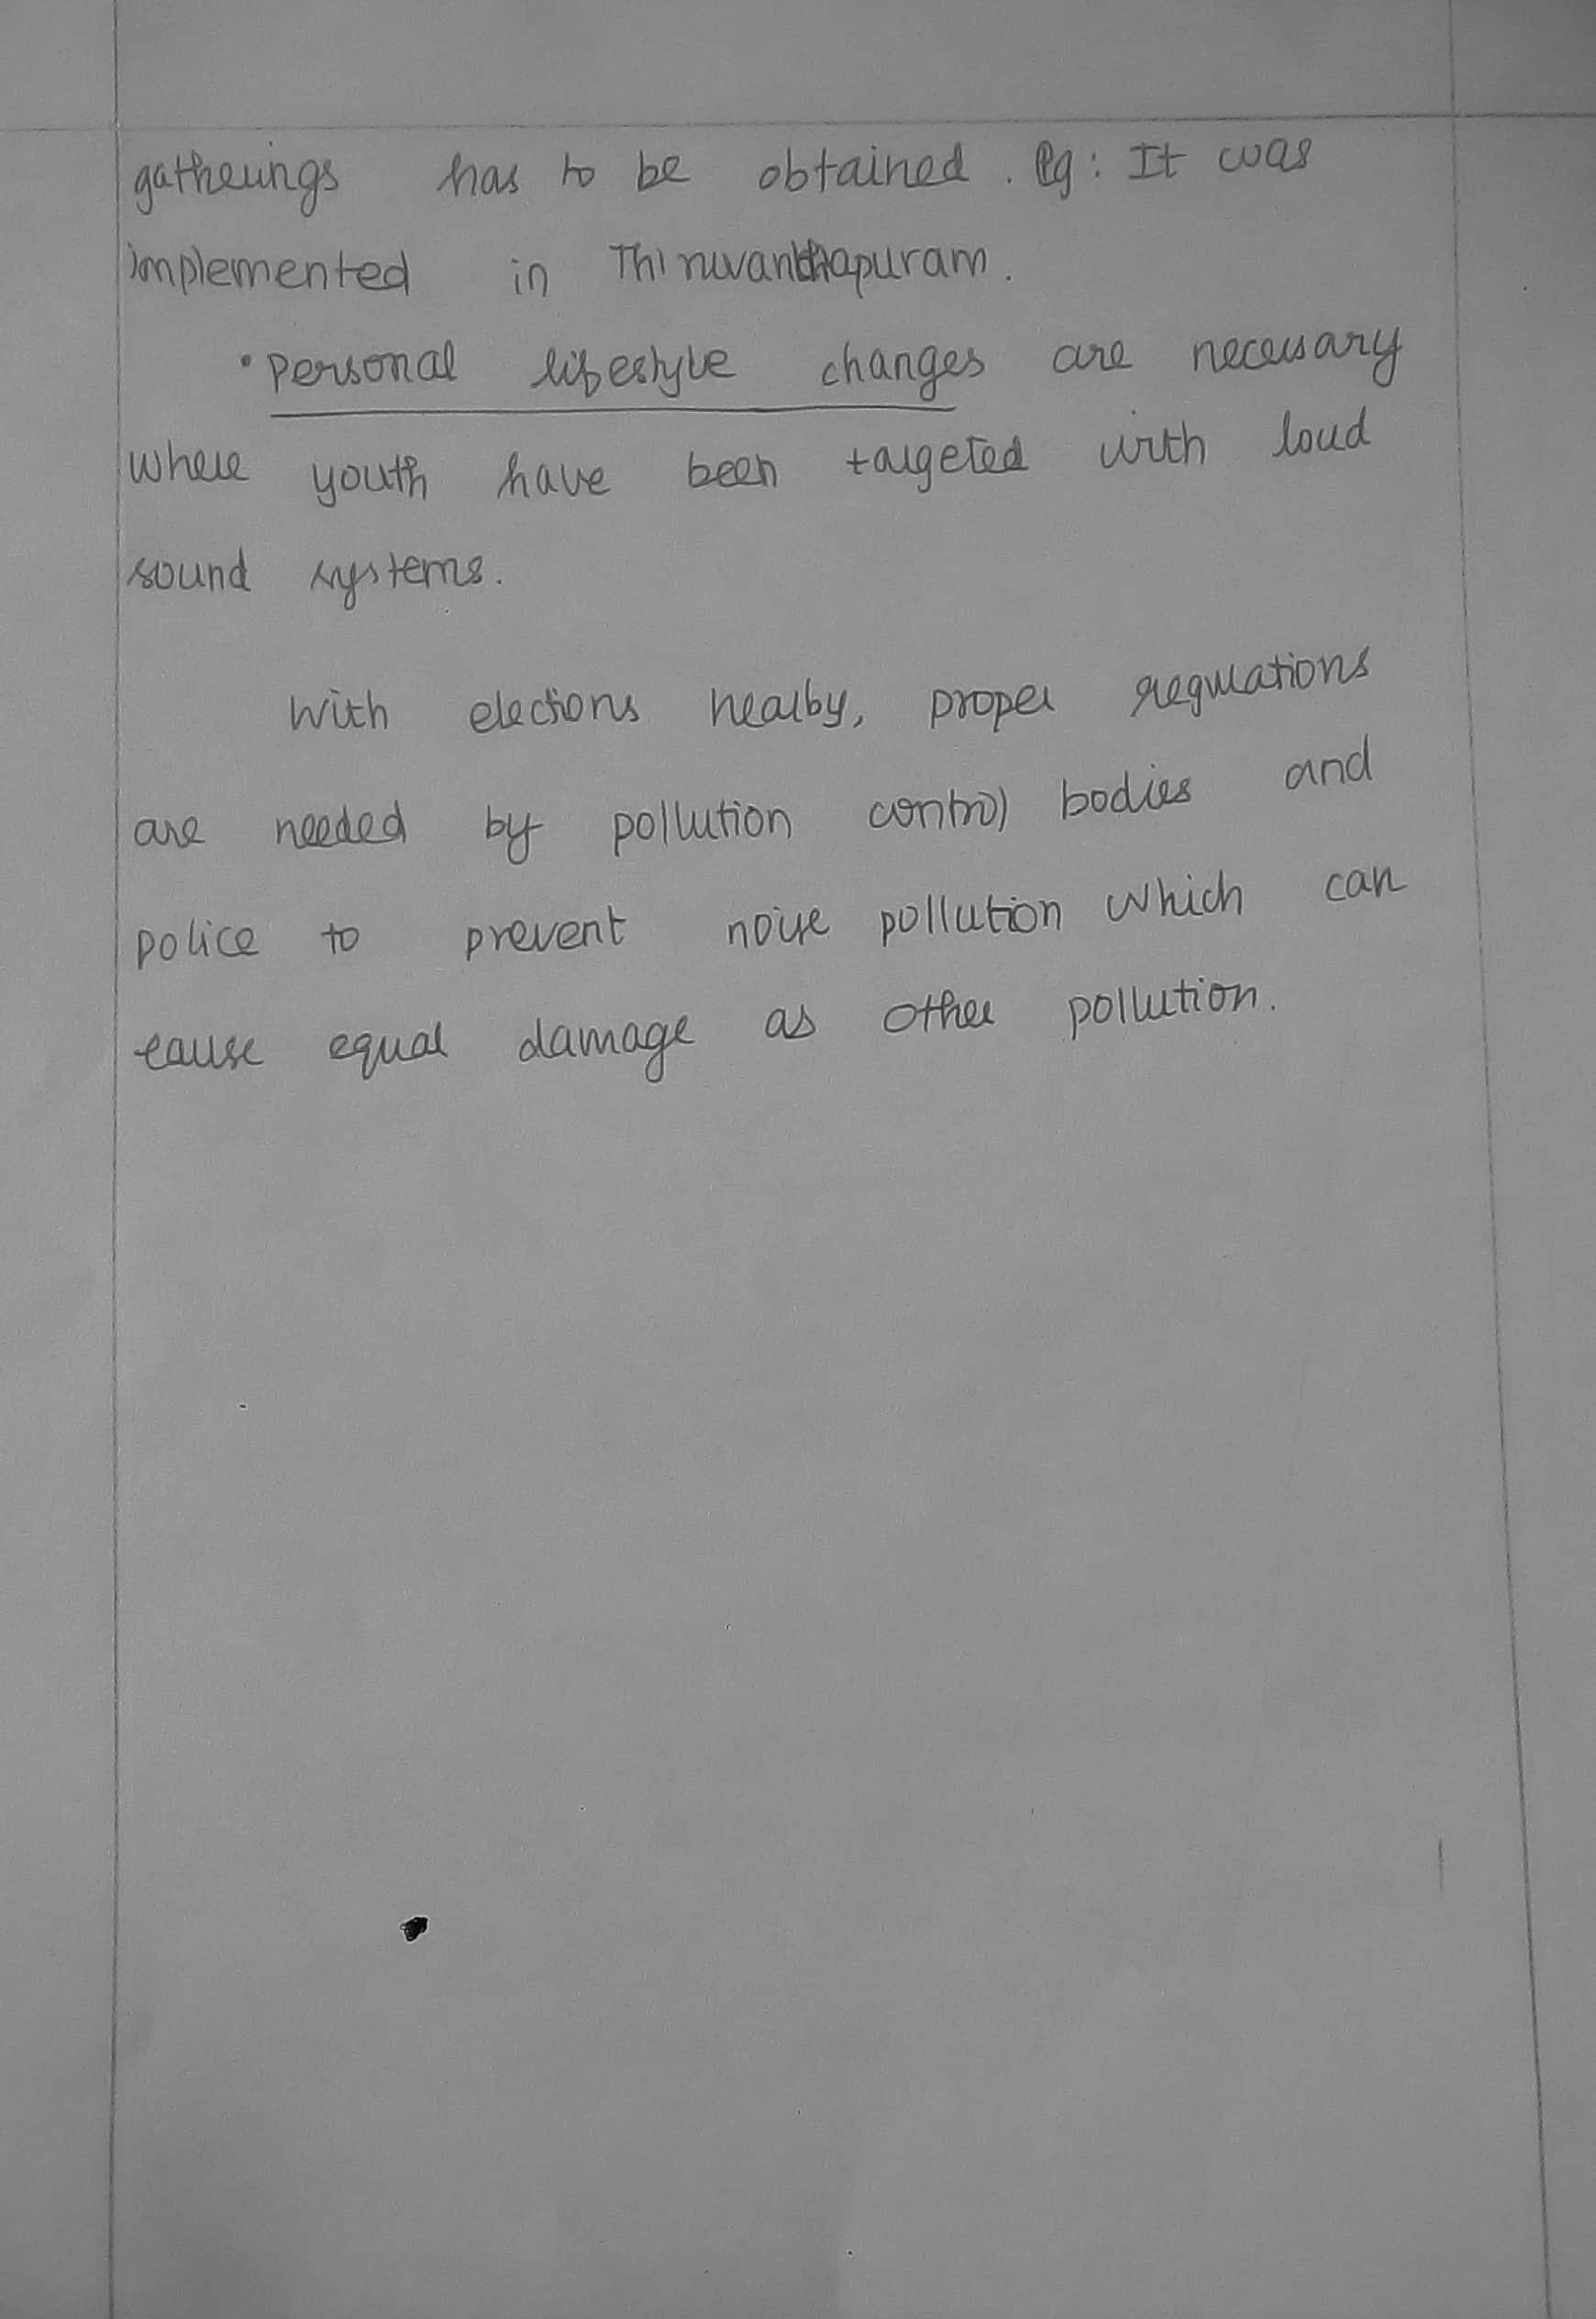 gatherings has to be obtained. Eg: It was
implemented in Thiruvanthapuram.
• Personal lifestyle changes are necessary
where youth have been targeted with loud
sound systems.
With elections nearby, proper regulations
are needed by pollution control bodies and
police to prevent noise pollution which can
cause equal damage as other pollution.